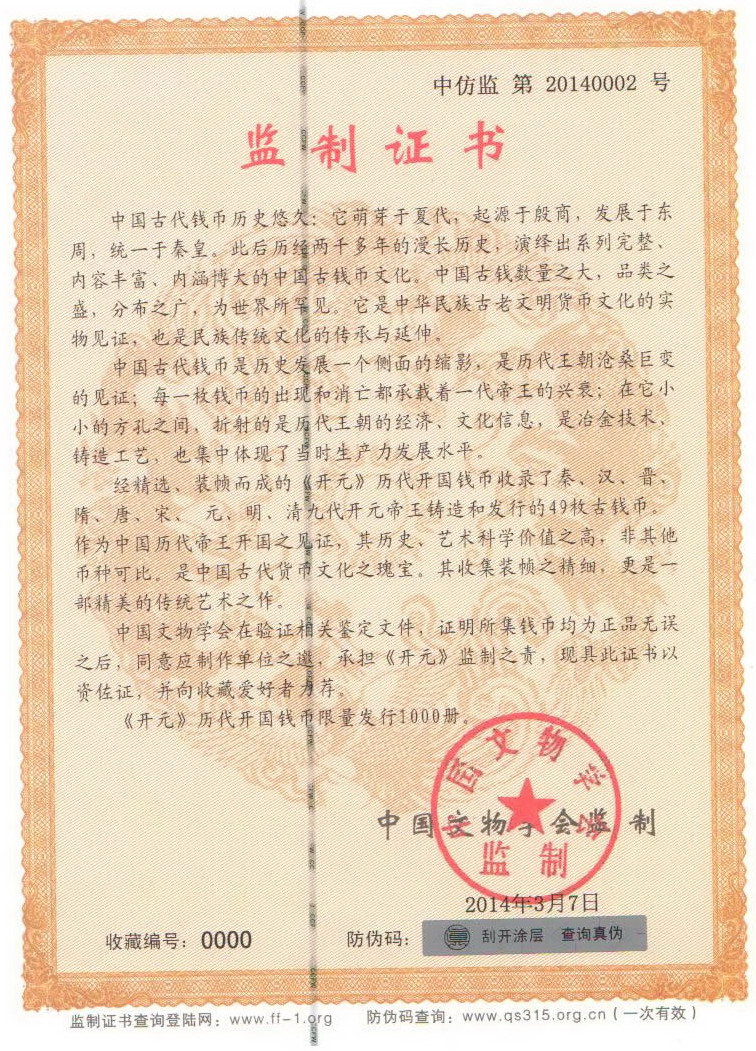 中仿监 第 20140002 号
监制证书
中国古代钱币历史悠久：它萌芽于夏代，起源于殷商，发展于东
周，统一于秦皇。此后历经两千多年的漫长历史，演绎出系列完整、
内容丰富、内涵博大的中国古钱币文化。中国古钱数量之大，品类之
盛，分布之广，为世界所罕见。它是中华民族古老文明货币文化的实
物见证，也是民族传统文化的传承与延伸。
中国古代钱币是历史发展一个侧面的缩影，是历代王朝沧桑巨变
的见证；每一枚钱币的出现和消亡都承载着一代帝王的兴衰；在它小
小的方孔之间，折射的是历代王朝的经济、文化信息，是冶金技术、
铸造工艺，也集中体现了当时生产力发展水平。
经精选、装帧而成的《开元》历代开国钱币收录了秦、汉、晋、
隋、唐、宋、 元、明、清九代开元帝王铸造和发行的49枚古钱币。
作为中国历代帝王开国之见证，其历史、艺术科学价值之高，非其他
币种可比。是中国古代货币文化之瑰宝。其收集装帧之精细，更是一
部精美的传统艺术之作。
中国文物学会在验证相关鉴定文件，证明所集钱币均为正品无误
之后，同意应制作单位之邀，承担《开元》监制之责，现具此证书以
资佐证，并向收藏爱好者力荐。
《开元》历代开国钱币限量发行1000册。
中国文物学会
监制
中国文物学会监制
2014年3月7日
收藏编号：0000
防伪码：
刮开涂层 查询真伪
监制证书查询登陆网：www.ff-1.org 防伪码查询：www.qs315.org.cn（一次有效）